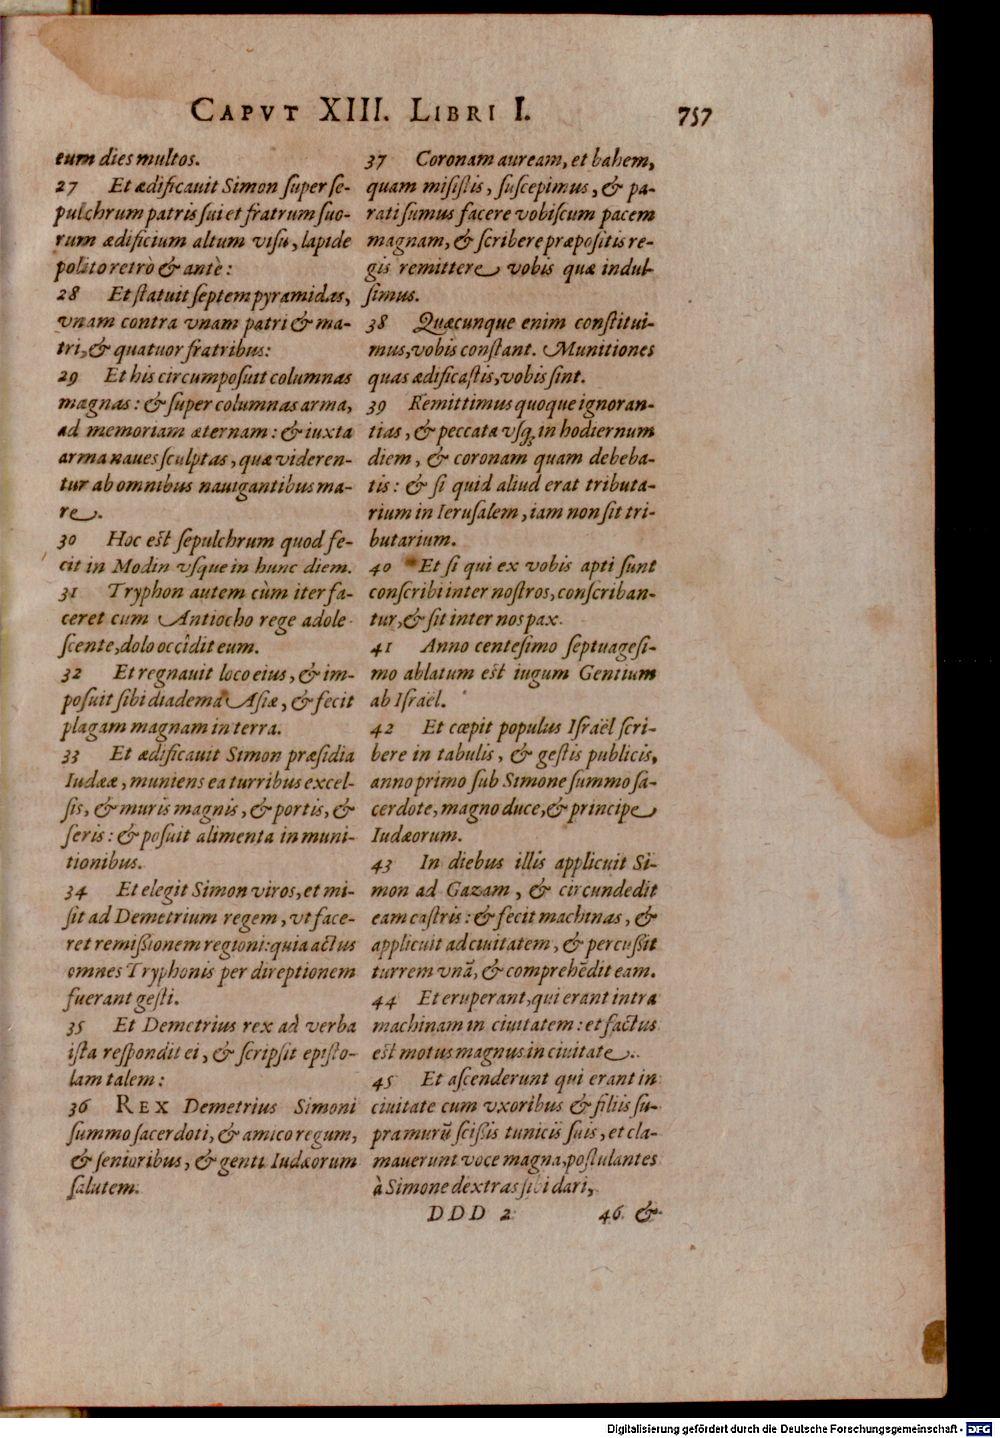 CAPVT XIII. LIBRI I. 757
eum dies multos.
27 Et ædificauit Simon ſuper ſe-
pulchrum patris ſui et fratrum ſuo-
rum ædificium altum viſu, lapide
polito retrò & antè:
28 Et ſtatuit ſeptem pyramidas,
vnam contra vnam patri & ma-
tri, & quatuor fratribus:
29 Et his circumpoſuit columnas
magnas: & ſuper columnas arma,
ad memoriam æternam: & iuxta
arma naues ſculptas, quæ videren-
tur ab omnibus nauigantibus ma-
re.
30 Hoc eſt ſepulchrum quod fe-
cit in Modin vſque in hunc diem.
31 Tryphon autem cùm iter fa-
ceret cum Antiocho rege adole-
ſcente, dolo occîdit eum.
32 Et regnauit loco eius, & im-
poſuit ſibi diadema Aſiæ, & fecit
plagam magnam in terra.
33 Et ædificauit Simon præſidia
Iudææ, muniens ea turribus excel-
ſis, & muris magnis, & portis, &
ſeris: & poſuit alimenta in muni-
tionibus.
34 Et elegit Simon viros, et mi-
ſit ad Demetrium regem, vt face-
ret remiſſionem regioni: quia actus
omnes Tryphonis per direptionem
fuerant geſti.
35 Et Demetrius rex ad verba
iſta reſpondit ei, & ſcripſit epiſto-
lam talem:
36 REX Demetrius Simoni
ſummo ſacerdoti, & amico regum,
& ſenioribus, & genti Iudæorum
ſalutem.
37 Coronam auream, et bahem,
quam miſiſtis, ſuſcepimus, & pa-
rati ſumus facere vobiſcum pacem
magnam, & ſcribere præpoſitis re-
gis remittere vobis quæ indul-
ſimus.
38 Quæcunque enim conſtitui-
mus, vobis conſtant. Munitiones
quas ædificaſtis, vobis ſint.
39 Remittimus quoque ignoran-
tias, & peccata vſq; in hodiernum
diem, & coronam quam debeba-
tis: & ſi quid aliud erat tributa-
rium in Ieruſalem, iam non ſit tri-
butarium.
40 Et ſi qui ex vobis apti ſunt
conſcribi inter noſtros, conſcriban-
tur, & ſit inter nos pax.
41 Anno centeſimo ſeptuageſi-
mo ablatum eſt iugum Gentium
ab Iſraël.
42 Et cœpit populus Iſraël ſcri-
bere in tabulis, & geſtis publicis,
anno primo ſub Simone ſummo ſa-
cerdote, magno duce, & principe
Iudæorum.
43 In diebus illis applicuit Si-
mon ad Gazam, & circundedit
eam caſtris: & fecit machinas, &
applicuit ad ciuitatem, & percuſſit
turrem vnã, & comprehẽdit eam.
44 Et eruperant, qui erant intra
machinam in ciuitatem: et factus
eſt motus magnus in ciuitate.
45 Et aſcenderunt qui erant in
ciuitate cum vxoribus & filiis ſu-
pra murũ ſciſſis tunicis ſuis, et cla-
mauerunt voce magna, poſtulantes
à Simone dextras ſibi dari,
DDD 2 46 &
Digitalisierung gefördert durch die Deutsche Forschungsgemeinschaft - DFG